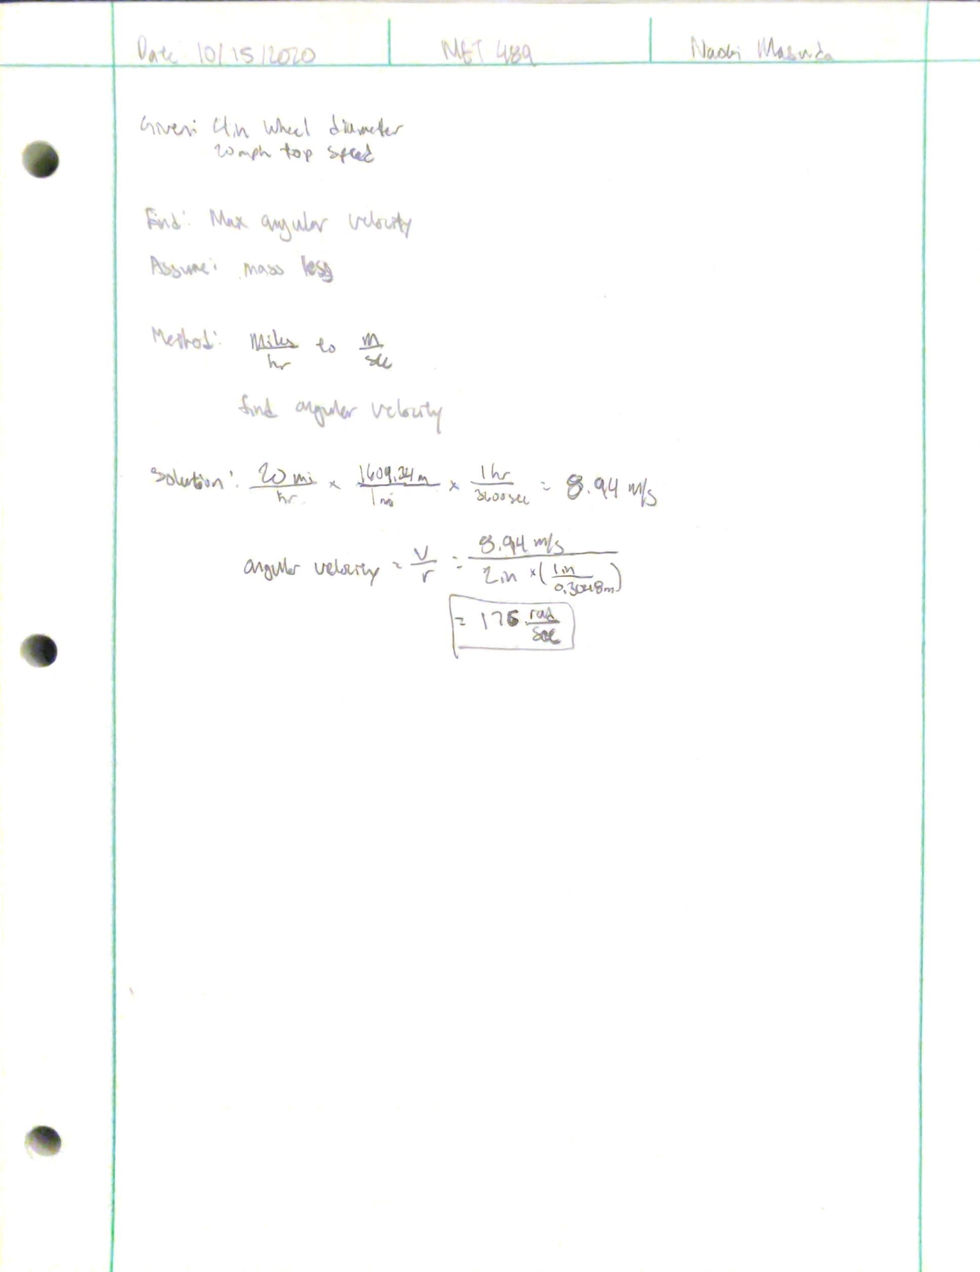 Date 10/15/2020 MET 489 Naoki Masuda
Given: 4in wheel diameter
20mph top speed
Find: Max angular velocity
Assume: mass less
Method: Miles/hr to m/sec
find angular velocity
Solution: 20 mi/hr × 1609.34m/1mi × 1hr/3600sec = 8.94 m/s
angular velocity = V/r = 8.94 m/s / 2in × (1in/0.3048m)
= 176 rad/sec